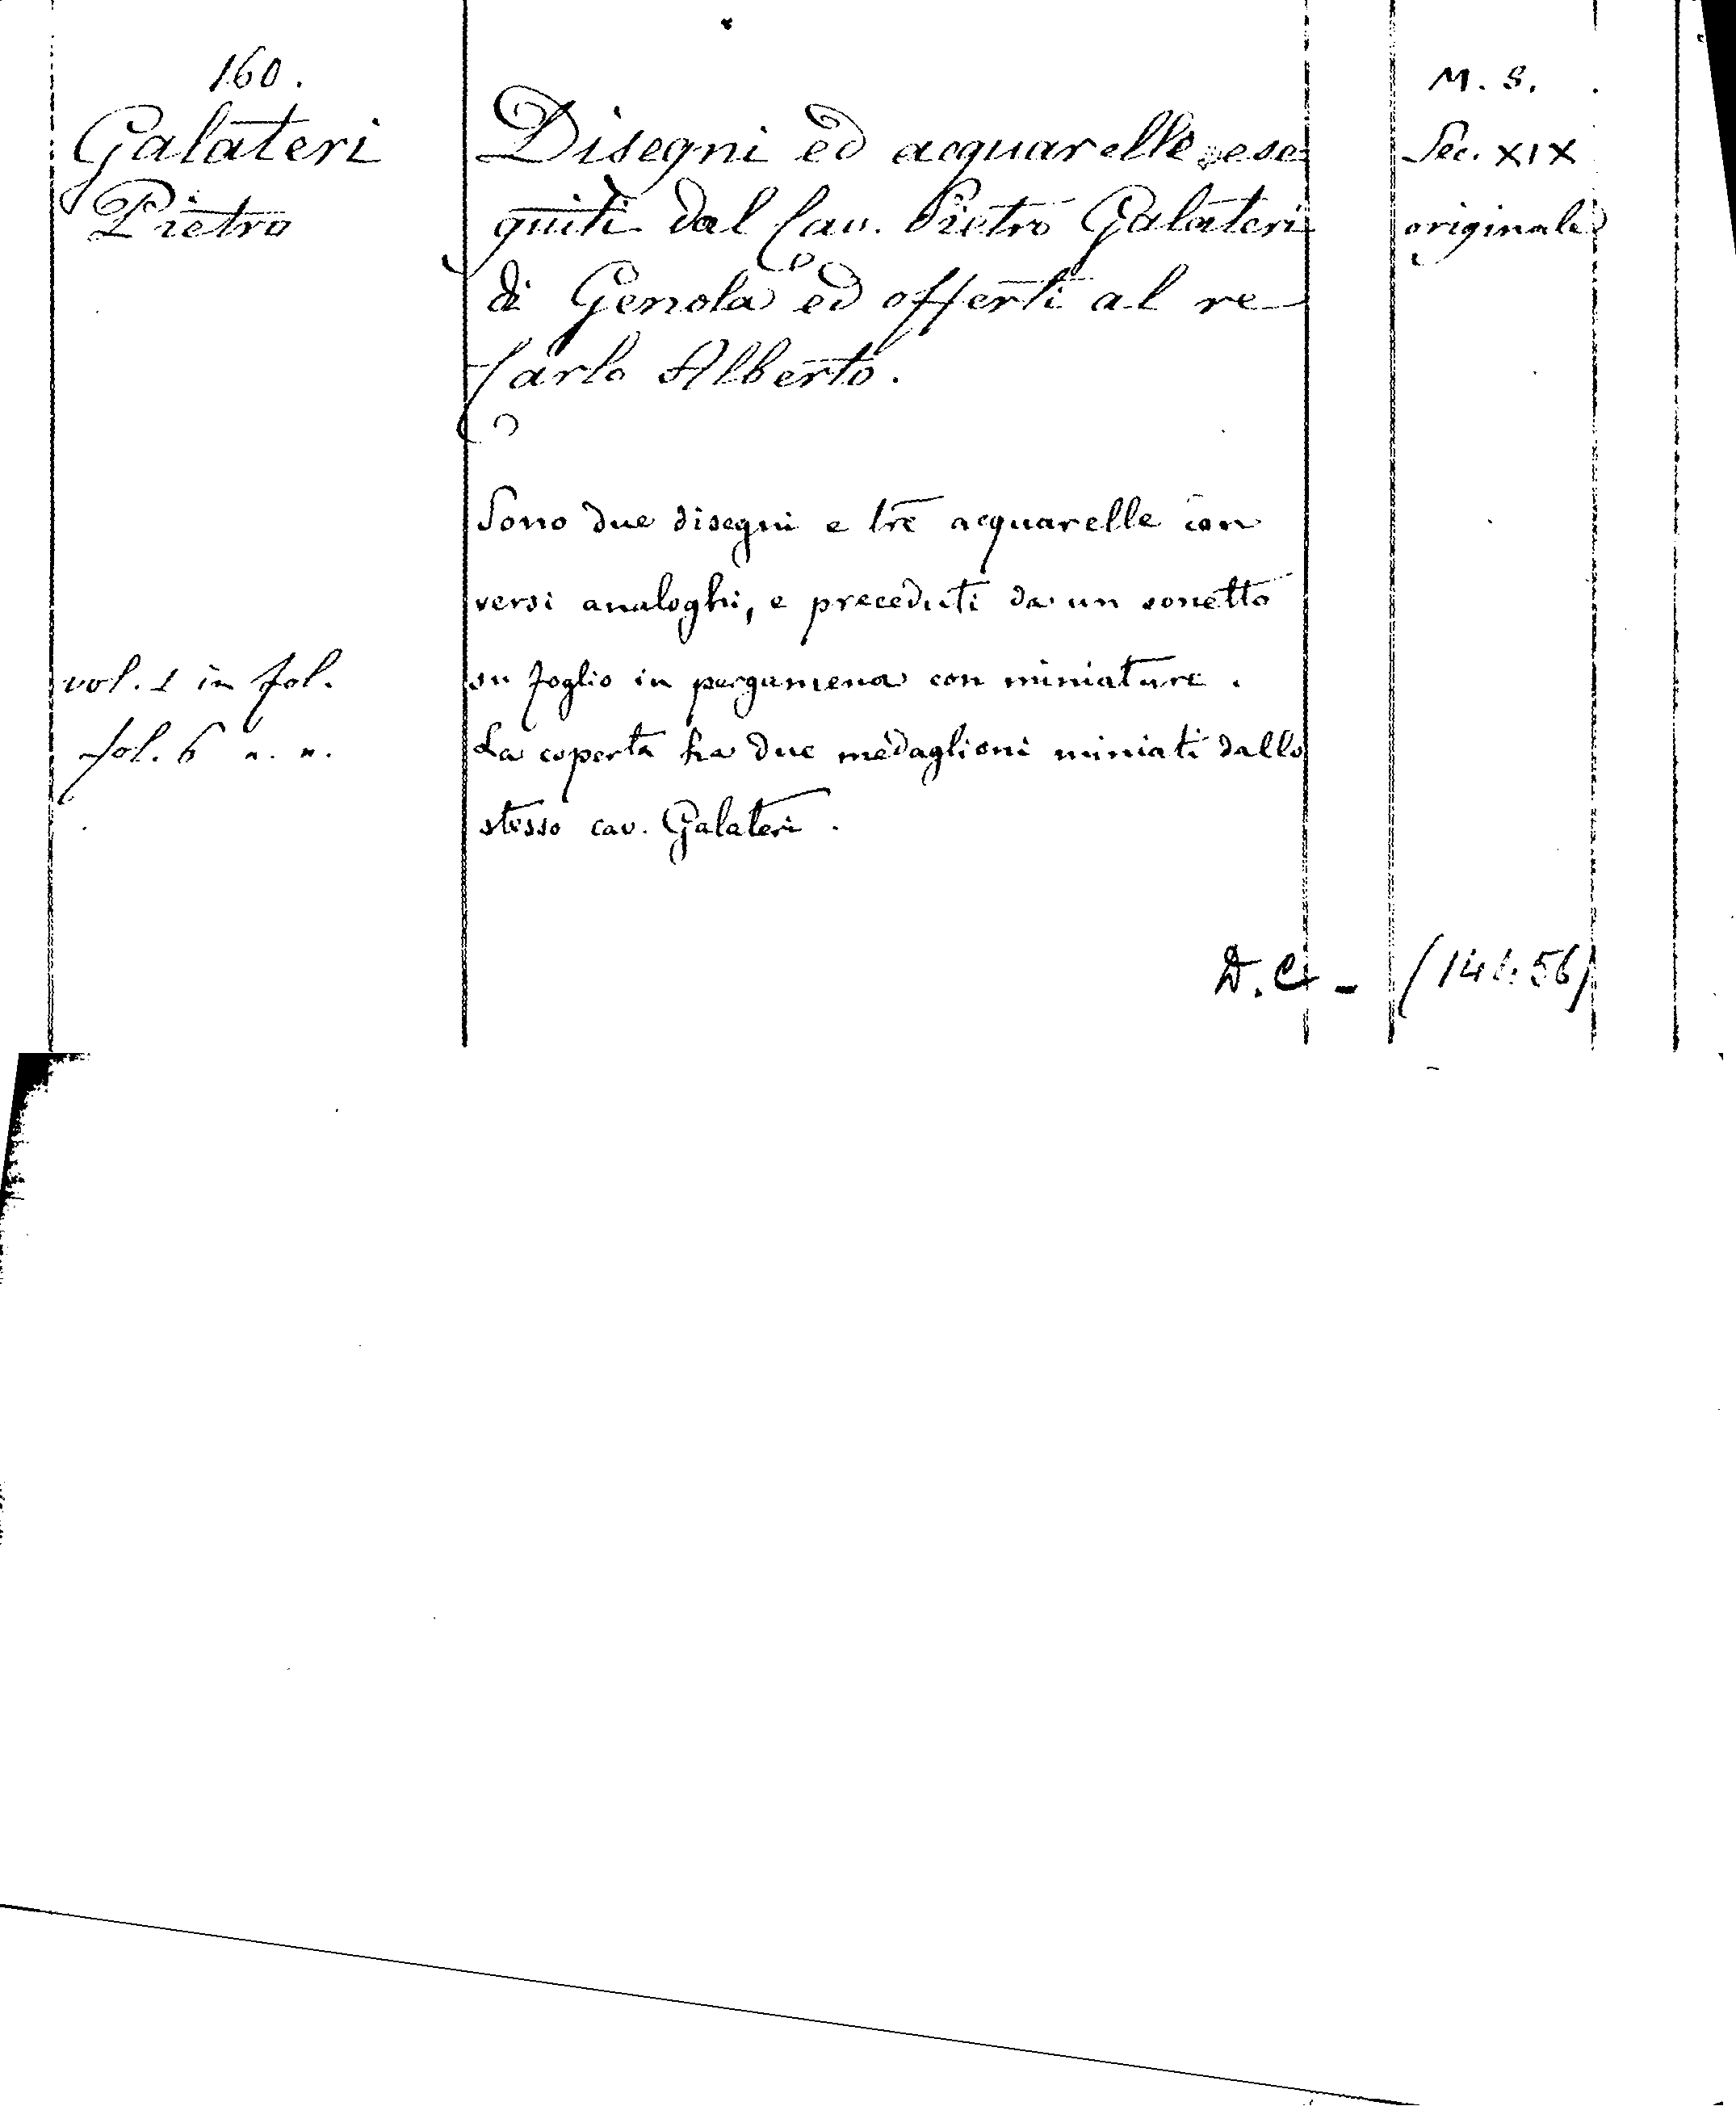 160.
Galateri
Pietro
vol. 1 in fol.
fol. 6 n. n.
Disegni ed acquarelle ese
guiti dal Cav. Pietro Galateri
di Genola ed offerti al re
Carlo Alberto.
Sono due disegni e tre acquarelle con
versi analoghi, e preceduti da un sonetto
su foglio in pergamena con miniature.
La coperta ha due medaglioni miniati dallo
stesso cav. Galateri.
M. S.
Sec. XIX
originale
D. C. -